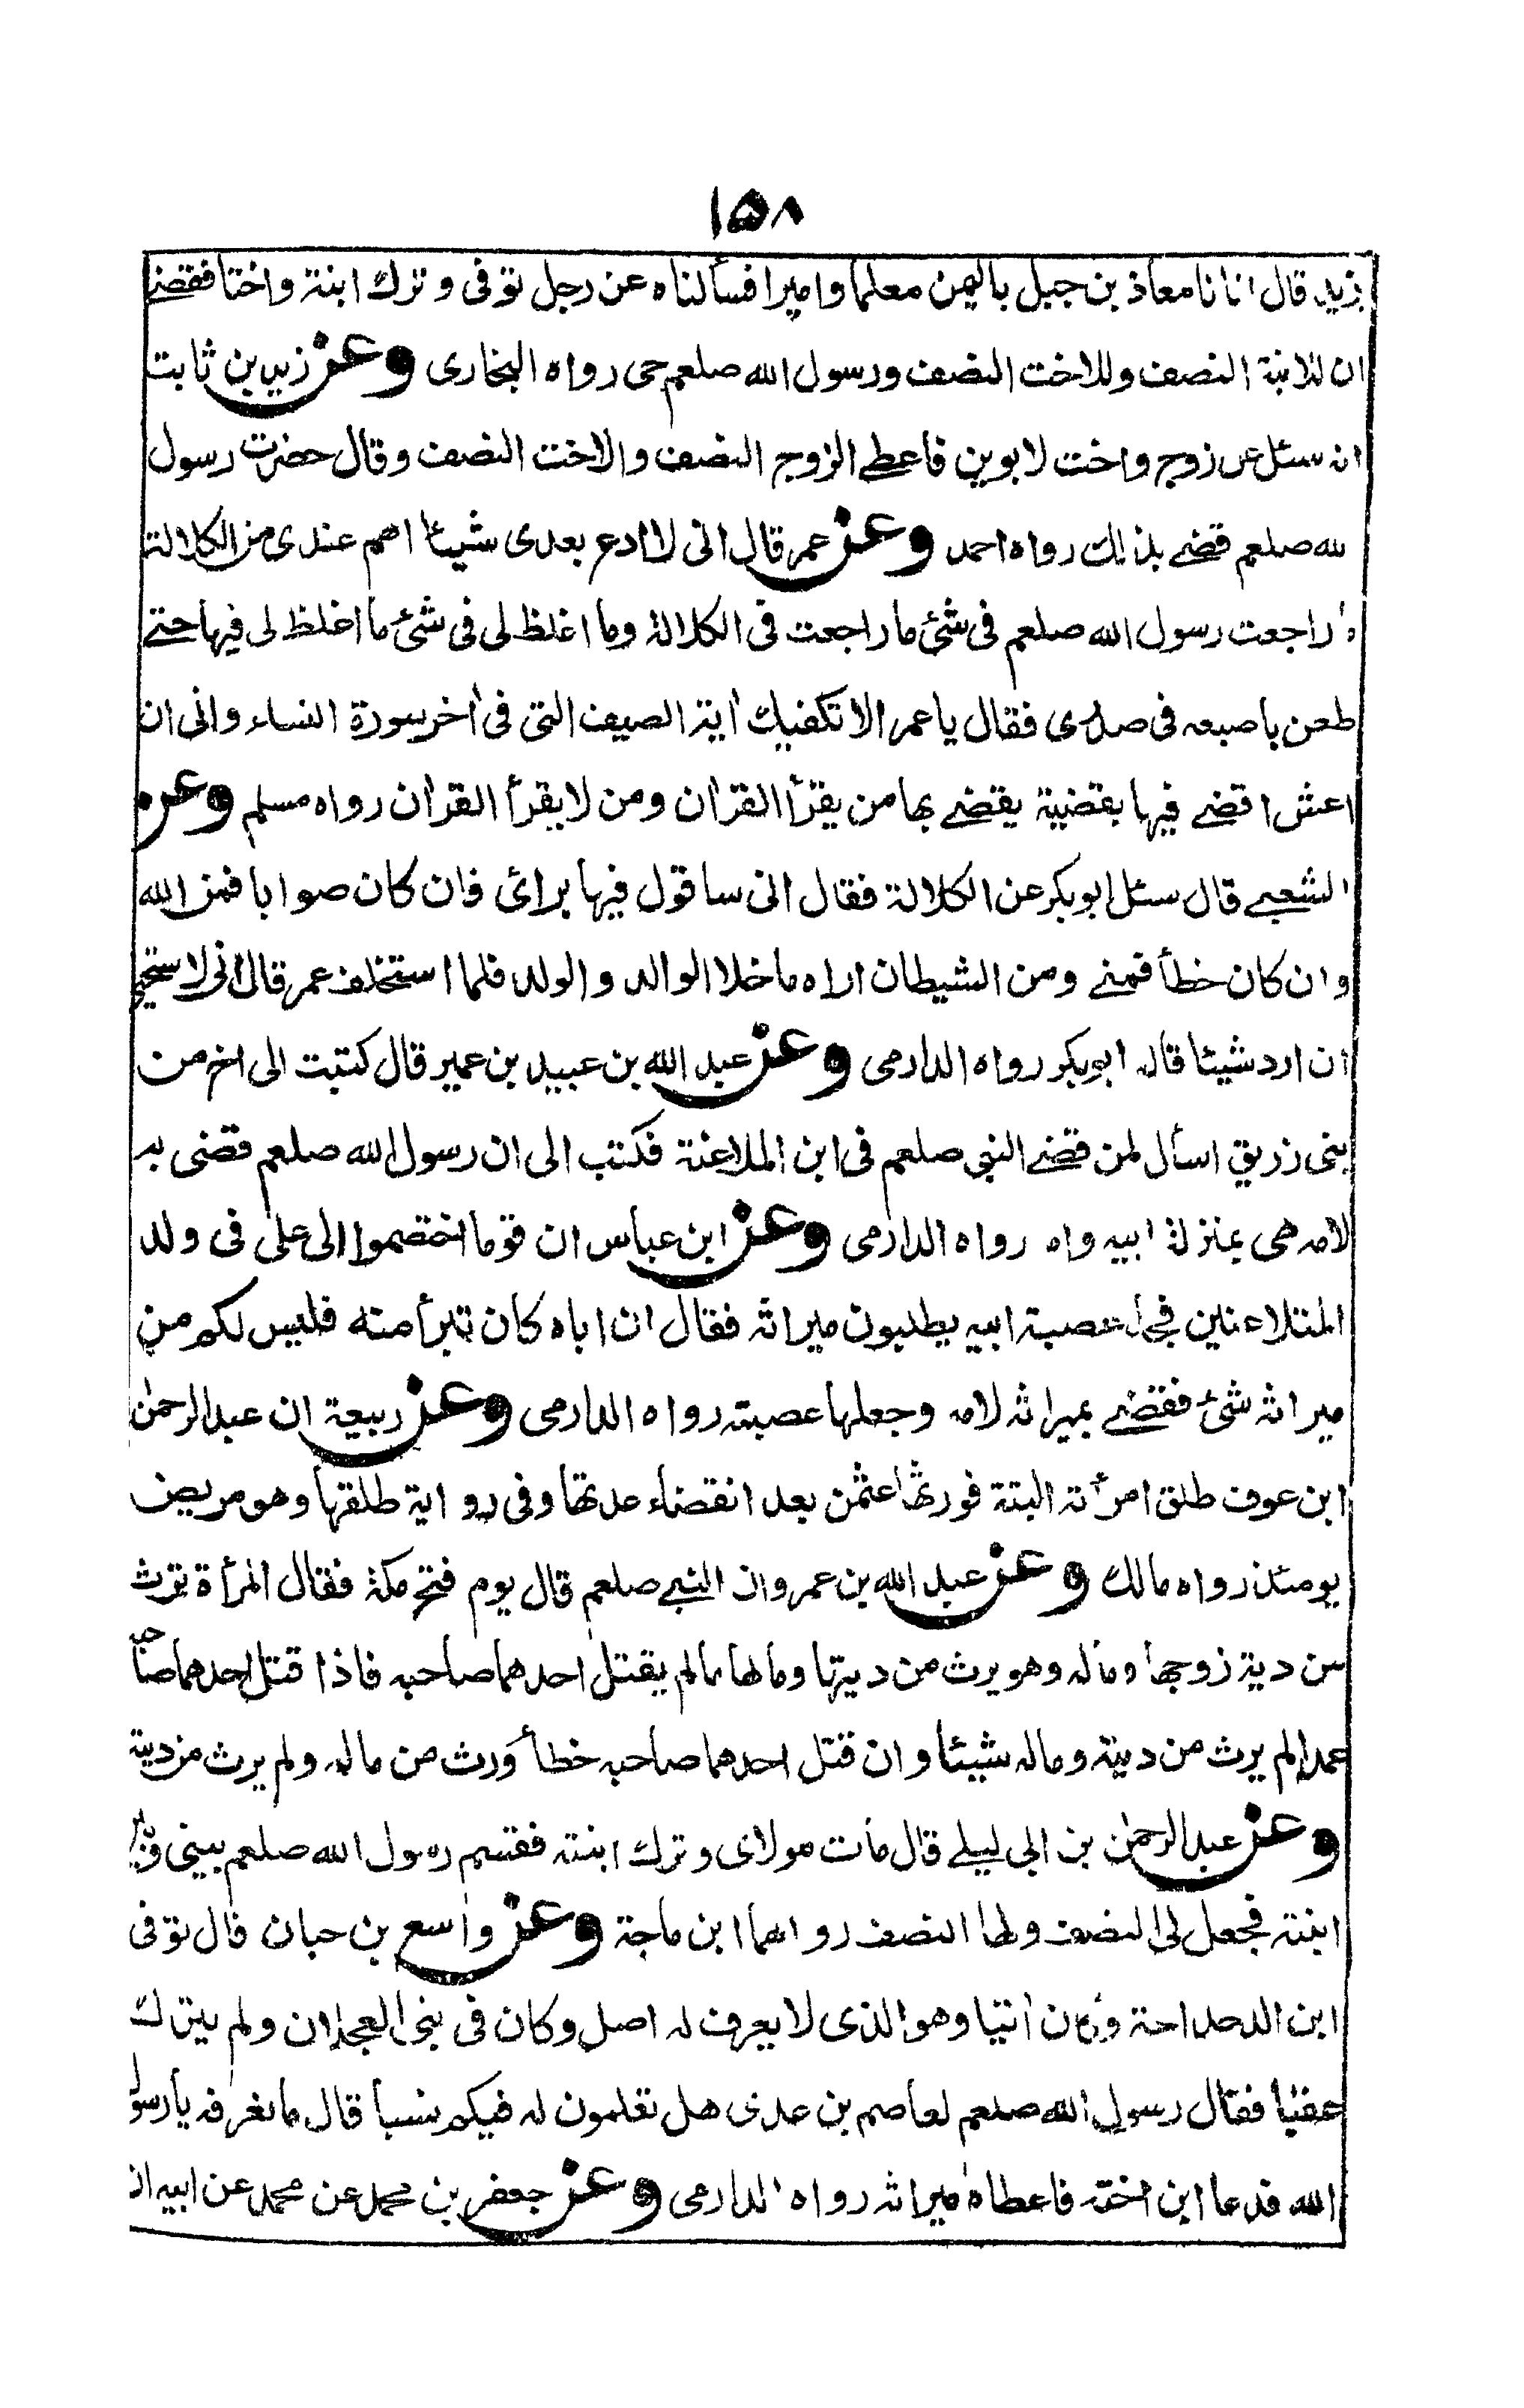 ١٥٨
يزيد قال اتانا معاذ بن جبل باليمن معلما واميرا فسألناه عن رجل توفى وترك ابنة واختا فقضے
ان للابنة النصف وللاخت النصف ورسول الله صلعم حى رواه البخارى وعن زيد بن ثابت
انه سئل عن زوج واخت لابوين فاعطے الزوج النصف والاخت النصف وقال حضرت رسول
لله صلعم قضے بذلك رواه احمد وعن عمر قال انى لا ادع بعدى شيئا اهم عندى من الكلالة
ما راجعت رسول الله صلعم فى شئ ما راجعت فى الكلالة وما اغلظ لى فى شئ ما اغلظ لى فيها حتے
طعن باصبعه فى صدرى فقال يا عمر الا تكفيك اٰية الصيف التى فى اٰخر سورة النساء وانى ان
اعش اقضے فيها بقضية يقضے بها من يقرأ القراٰن ومن لا يقرأ القراٰن رواه مسلم وعن
الشعبے قال سئل ابو بكر عن الكلالة فقال انى ساقول فيها برائى فان كان صوابا فمن الله
وان كان خطأ فمنے ومن الشيطان اراه ما خلا الوالد والولد فلما استخلف عمر قال انى لاستحيى
ان ارد شيئا قاله ابو بكر رواه الدارمى وعن عبد الله بن عبيد بن عمير قال كتبت الى اخ من
بنى زريق اسأل لمن قضے النبى صلعم فى ابن الملاعنة فكتب الى ان رسول الله صلعم قضى به
لامه هى بمنزلة ابيه وامه رواه الدارمى وعن ابن عباس ان قوما اختصموا الى على فى ولد
المتلاعنين فجاء عصبة ابيه يطلبون ميراثه فقال ان اباه كان تبرأ منه فليس لكم من
ميراثه شئ فقضے بميراثه لامه وجعلها عصبته رواه الدارمى وعن ربيعة ان عبد الرحمٰن
ابن عوف طلق امرأته البتة فورثها عثمٰن بعد انقضاء عدتها وفى رواية طلقها وهو مريض
يومئذ رواه مالك وعن عبد الله بن عمرو ان النبے صلعم قال يوم فتح مكة فقال المرأة ترث
من دية زوجها وماله وهو يرث من ديتها ومالها مالم يقتل احدهما صاحبه فاذا قتل احدهما صاحبه
عمدا لم يرث من ديته وماله شيئا وان قتل احدهما صاحبه خطأ ورث من ماله ولم يرث من ديته
وعن عبد الرحمٰن بن ابى ليلے قال مات مولاى وترك ابنته فقسم رسول الله صلعم بينى وبين
ابنته فجعل لى النصف ولها النصف رواهما ابن ماجة وعن واسع بن حبان قال توفى
ابن الدحداحة وكان اٰتيا وهو الذى لا يعرف له اصل وكان فى بنى العجلان ولم يترك
عقبا فقال رسول الله صلعم لعاصم بن عدى هل تعلمون له فيكم نسبا قال ما نعرفه يا رسول
الله فدعا ابن اخته فاعطاه ميراثه رواه الدارمى وعن جعفر بن محمد عن محمد عن ابيه ان